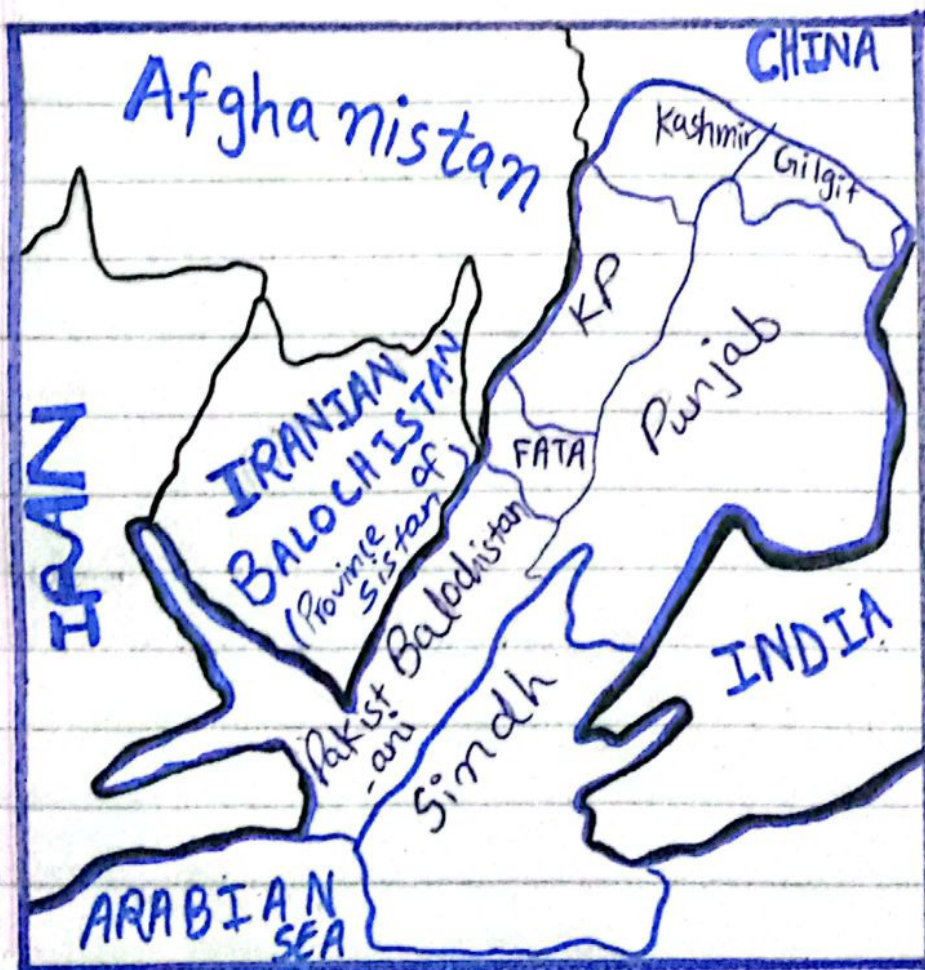 CHINA
Afghanistan
Kashmir
Gilgit
KP
Punjab
IRAN
IRANIAN
BALOCHISTAN
(Province of
Sistan)
FATA
Pakist
-ani Balochistan
Sindh
INDIA
ARABIAN
SEA